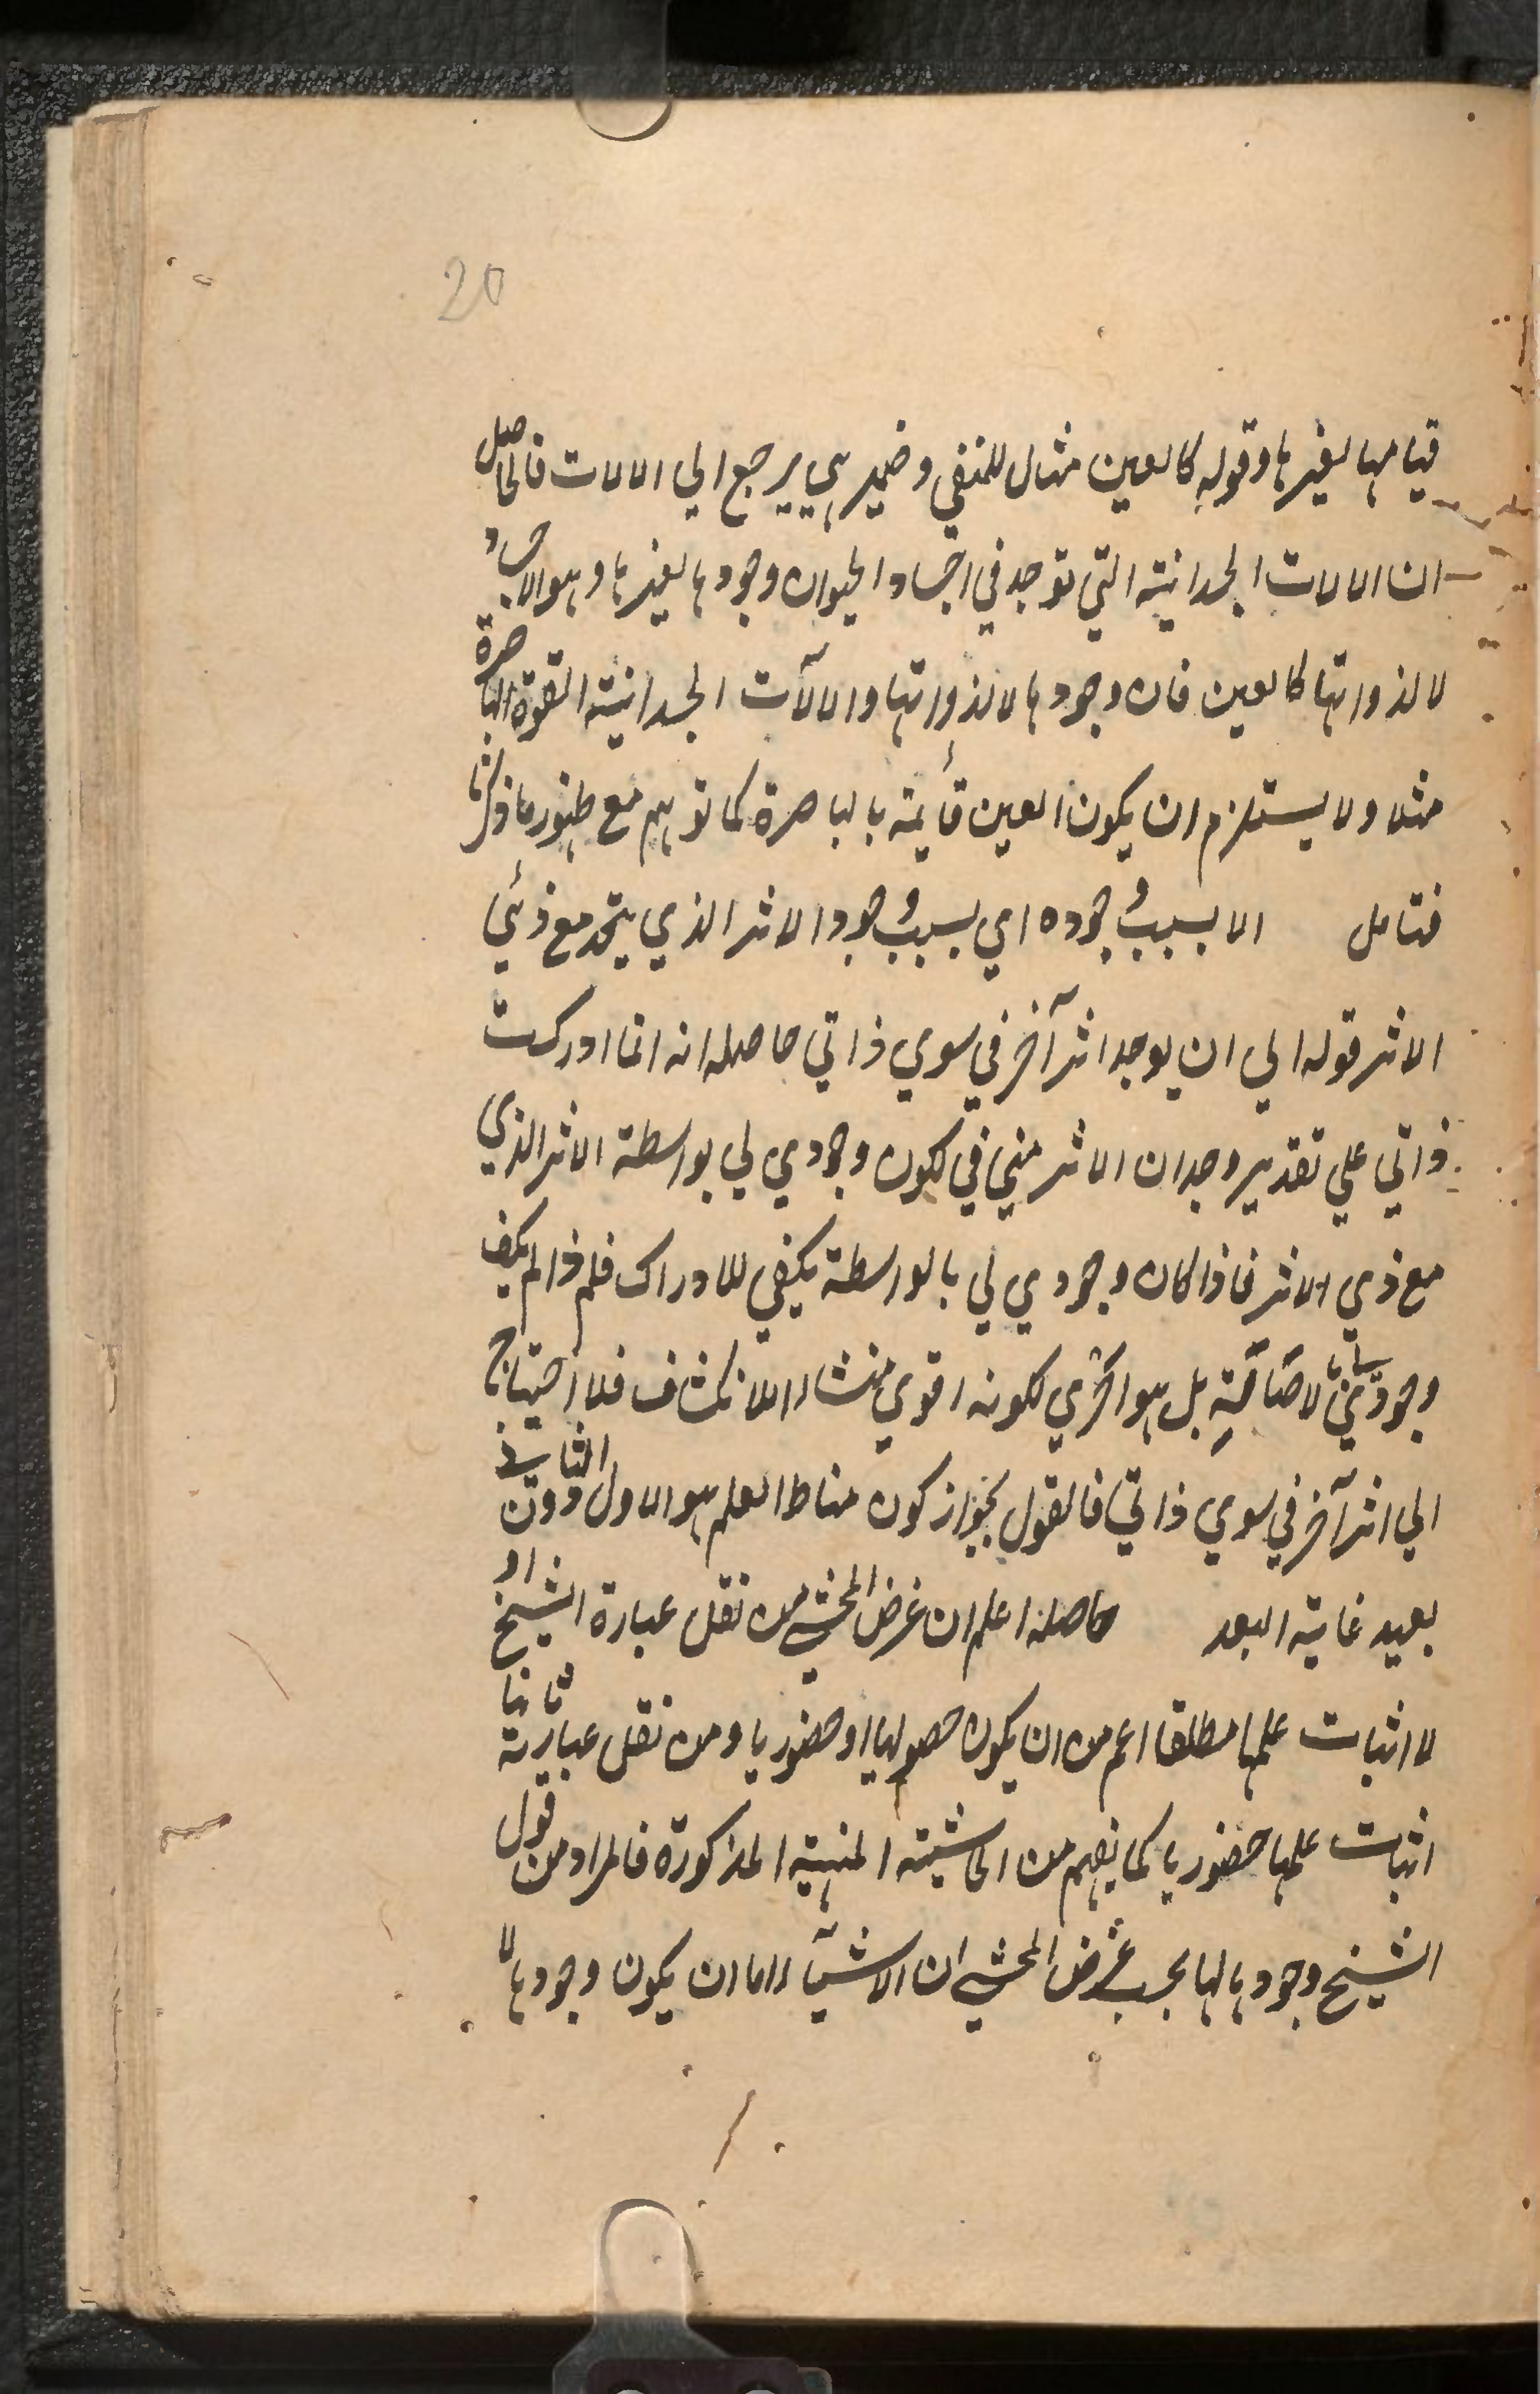 20
قيامها لغيرها وقوله كالعين مثال للمنفي وضمير هي يرجع الي الالات فالحاصل
ان الالات الجسدانية التي توجد في اجساد الحيوان وجودها لغيرها وهو الاجساد
لا لذواتها كالعين فان وجودها لا لذواتها والالآت الجسدانية القوة الباصرة
مثلا ولا يستلزم ان يكون العين قائمة بالباصرة كما توهم مع ظهور ما ذكرنا
فتامل الا بسبب وجوده اي بسبب وجود الاثر الذي يتحد مع ذي
الاثر قوله الي ان يوجد اثر آخر في سوي ذاتي حاصله انه انما ادركت
ذاتي علي تقدير وجدان الاثر مني في لكون وجودي لي بواسطة الاثر الذي
مع ذي الاثر فاذا كان وجودي لي بالواسطة يكفي للادراك فلم ذا لم يكف
وجودي لا صافية بل هو اخري لكونه اقوي منشاء الانكشاف فلا احتياج
الي اثر آخر في سوي ذاتي فالقول بجواز كون مناط العلم هو الاول دون الثاني
بعيد غاية البعد حاصله اعلم ان غرض المحشي من نقل عبارة الشيخ اولا
لاثبات علمها مطلقا اعم من ان يكون حصوليا او حضوريا ومن نقل عبارته ثانيا
اثبات علمها حضوريا كما يفهم من الحاشية المنهية المذكورة فالمراد من قول
الشيخ وجودها لها بحسب غرض المحشي ان الاشيآء اما ان يكون وجودها لا